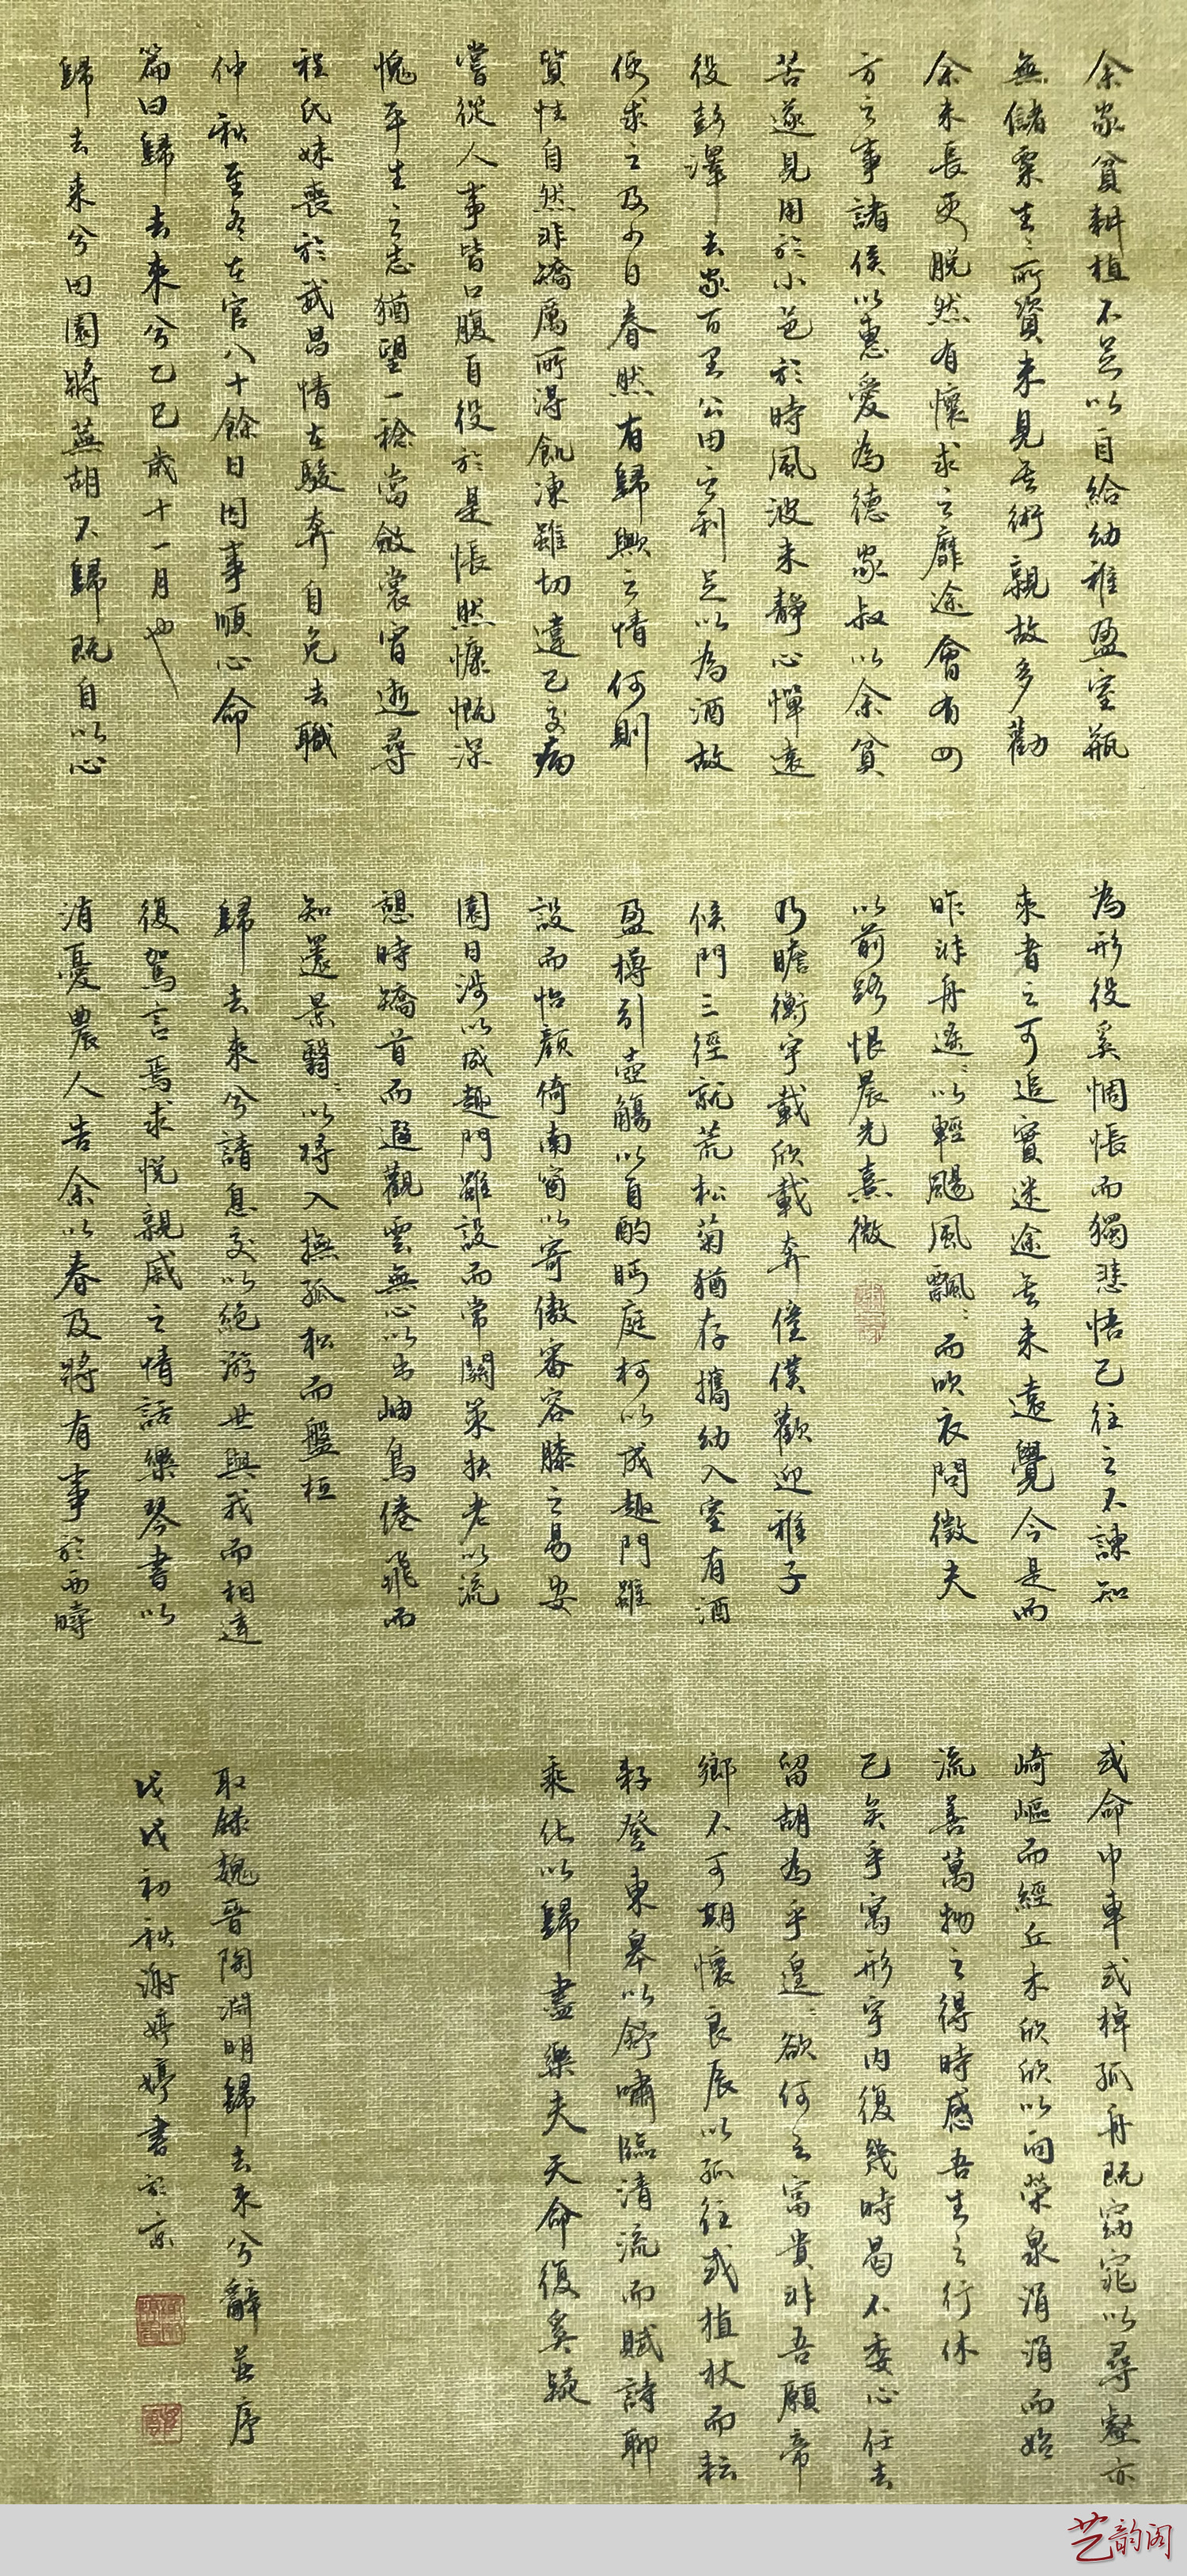 余家貧耕植不足以自給幼稚盈室瓶
無儲粟生ミ所資未見其術親故多勸
余未長吏脫然有懷求之靡途會有四
方之事諸侯以惠愛為德家叔以余貧
苦遂見用於小邑於時風波未靜心憚遠
役彭澤去家百里公田之利足以為酒故
便求之及少日眷然有歸歟之情何則
質性自然非矯厲所得飢凍雖切違己交病
嘗從人事皆口腹自役於是悵然慷慨深
愧平生之志猶望一稔當斂裳宵逝尋
程氏妹喪於武昌情在駿奔自免去職
仲秋至冬在官八十餘日因事順心命
篇曰歸去來兮乙巳歲十一月也
歸去來兮田園將蕪胡不歸既自以心
為形役奚惆悵而獨悲悟已往之不諫知
來者之可追實迷途其未遠覺今是而
昨非舟遙ミ以輕颺風飄ミ而吹衣問徵夫
以前路恨晨光熹微
乃瞻衡宇載欣載奔僮僕歡迎稚子
候門三徑就荒松菊猶存攜幼入室有酒
盈樽引壺觴以自酌眄庭柯以成趣門雖
設而怡顏倚南窗以寄傲審容膝之易安
園日涉以成趣門雖設而常關策扶老以流
憩時矯首而遐觀雲無心以出岫鳥倦飛而
知還景翳ミ以將入撫孤松而盤桓
歸去來兮請息交以絕游世與我而相違
復駕言焉求悅親戚之情話樂琴書以
消憂農人告余以春及將有事於西疇
或命巾車或棹孤舟既窈窕以尋壑亦
崎嶇而經丘木欣欣以向榮泉涓涓而始
流善萬物之得時感吾生之行休
已矣乎寓形宇内復幾時曷不委心任去
留胡為乎遑ミ欲何之富貴非吾願帝
鄉不可期懷良辰以孤往或植杖而耘
耔登東皋以舒嘯臨清流而賦詩聊
乘化以歸盡樂夫天命復奚疑
取錄魏晉陶淵明歸去來兮辭並序
戊戌初秋謝婷婷書於京
艺韵阁